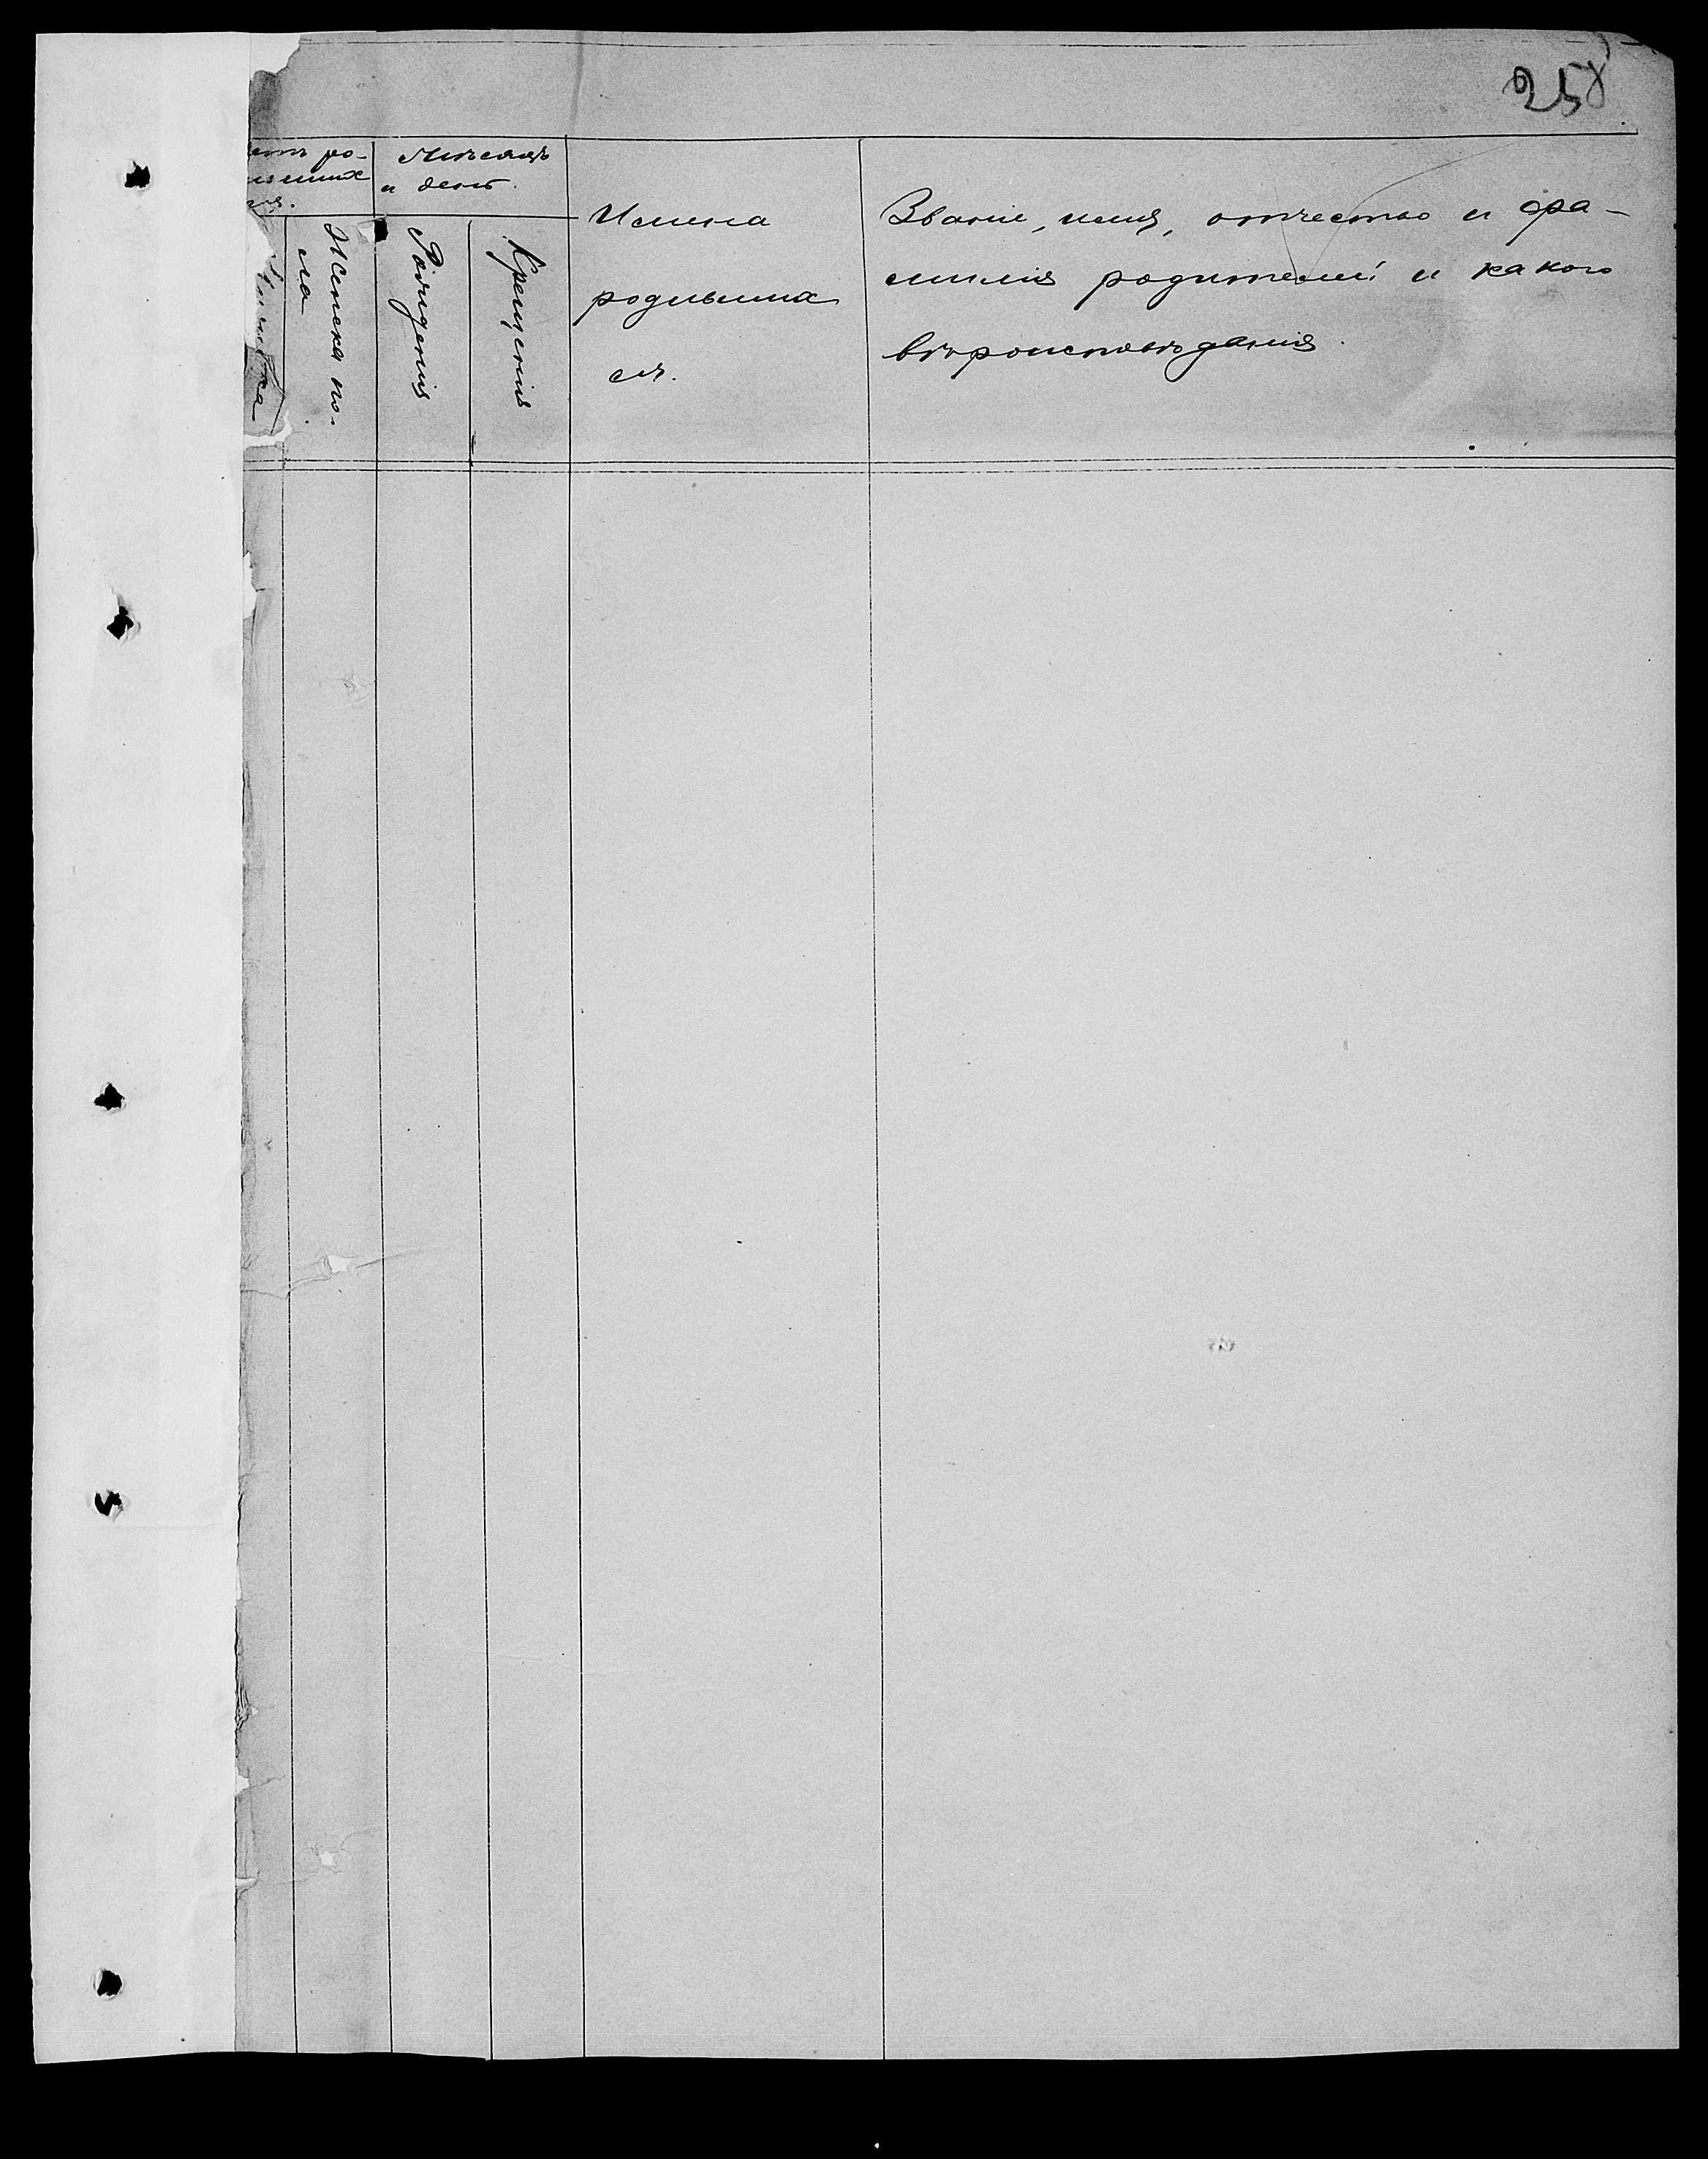 258
Мѣсяцъ
и день.
Женска по-
ла
Рожденія
Крещенія
Имена
родивших
ся.
Званіе, имя, отчество и фа-
милія родителей и какого
вѣроисповѣданія.